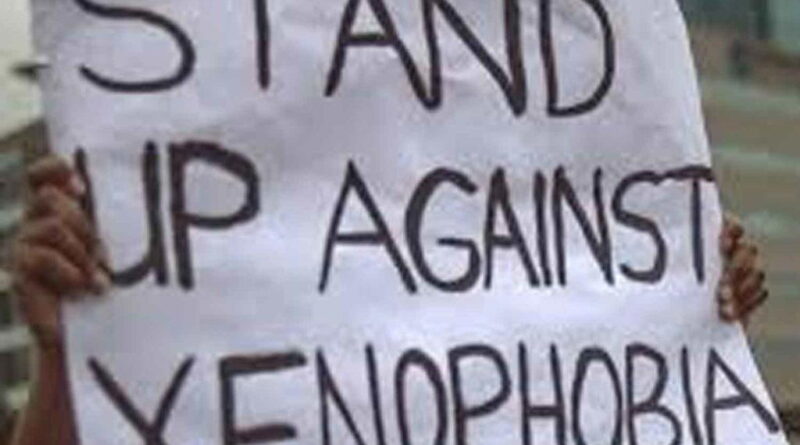 STAND
UP AGAINST
XENOPHOBIA